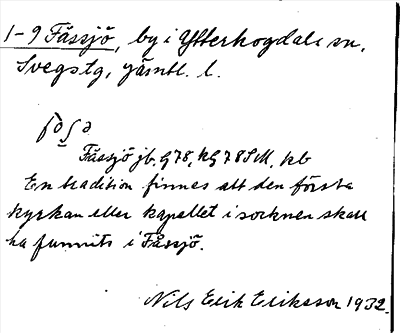 1-9 Fåssjö, by i Ytterhogdals sn,
Svegs tg, jämtl. l.
Fåssjö jb, G 78, kG 78 SM, kb
En tradition finnes att den första
kyrkan eller kapellet i socknen skall
ha funnits i Fåssjö.
Nils Erik Eriksson 1932.